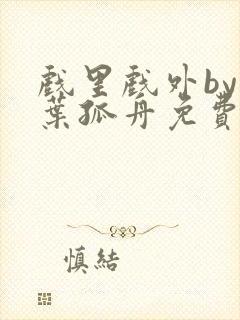 戲里戲外by
葉孤舟免費
慎結